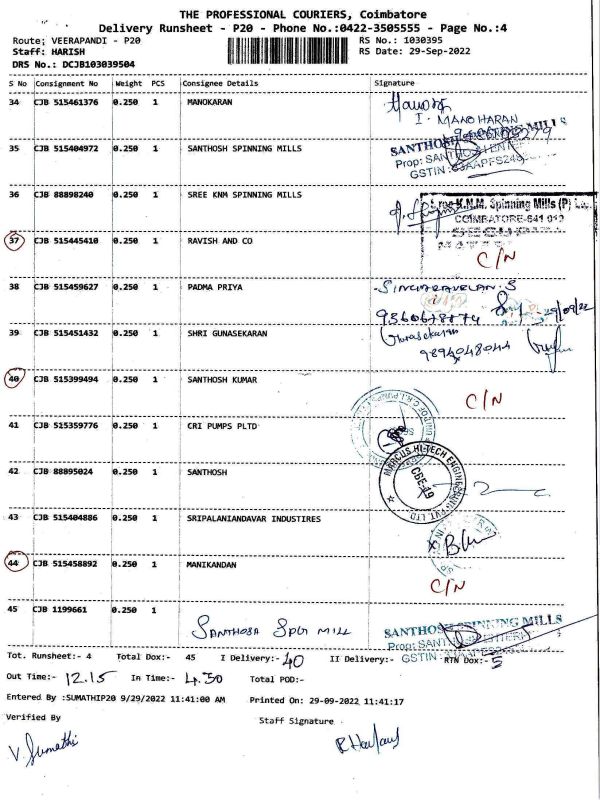 THE PROFESSIONAL COURIERS, Coimbatore
Delivery Runsheet - P20 - Phone No.:0422-3505555 - Page No.:4
Route; VEERAPANDI - P20 RS No.: 1030395
Staff: HARISH RS Date: 29-Sep-2022
DRS No.: DCJB103039504
S No Consignment No Weight PCS Consignee Details Signature
34 CJB 515461376 0.250 1 MANOKARAN
I. MANOHARAN
35 CJB 515404972 0.250 1 SANTHOSH SPINNING MILLS SANTHOSH SPINNING MILLS
36 CJB 88898240 0.250 1 SREE KNM SPINNING MILLS Sree K.N.M. Spinning Mills (P)
COIMBATORE-641 012
37 CJB 515445410 0.250 1 RAVISH AND CO
C/N
38 CJB 515459627 0.250 1 PADMA PRIYA SINGARAVELAN.S
9360678874 29/09/22
39 CJB 515451432 0.250 1 SHRI GUNASEKARAN Gunasekaran
9894048044
40 CJB 515399494 0.250 1 SANTHOSH KUMAR
C/N
41 CJB 515359776 0.250 1 CRI PUMPS PLTD
42 CJB 88895024 0.250 1 SANTHOSH MARCUS HI-TECH ENGINEERING PVT. LTD.
CBE-19
43 CJB 515404886 0.250 1 SRIPALANIANDAVAR INDUSTIRES
44 CJB 515458892 0.250 1 MANIKANDAN
C/N
45 CJB 1199661 0.250 1
SANTHOSH SPG MILL SANTHOSH SPINNING MILLS
Tot. Runsheet:- 4 Total Dox:- 45 I Delivery:- 40 II Delivery:- RTN Dox:- 5
Out Time:- 12.15 In Time:- 4.50 Total POD:-
Entered By :SUMATHIP20 9/29/2022 11:41:00 AM Printed On: 29-09-2022 11:41:17
Verified By Staff Signature
V. Sumathi